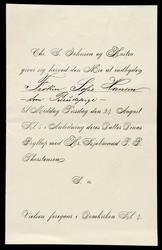 Chr. S. Johnsen og Hustru
giver sig herved den Ære at indbyde
Frøken Sofie Hansen
som Brudepige
til Middag Tirsdag den 24 August
Kl. i Anledning deres Datter
Bryllup med Hr. T. P.
Thorstensen
S. u.
Vielsen foregaar i Domkirken Kl. 2.